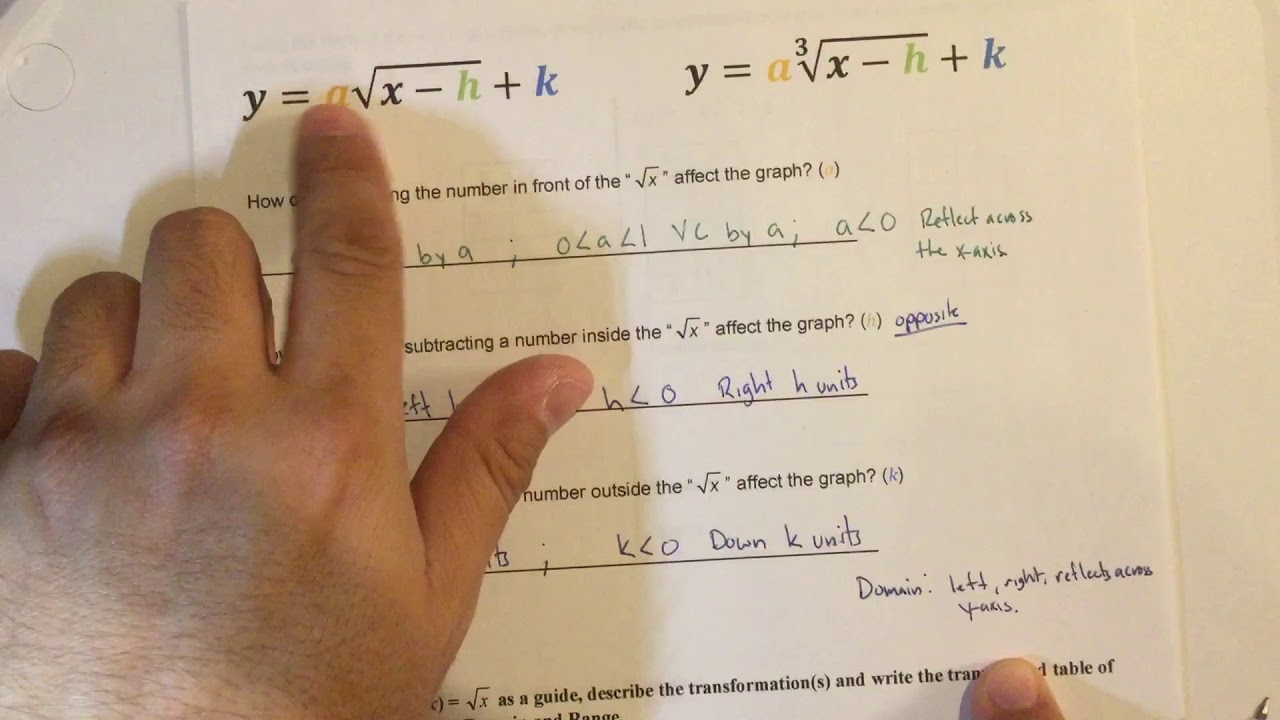 y = a√x − h + k
y = a ∛x − h + k
How the number in front of the “√x” affect the graph? (a)
by a ; 0<a<1 VC by a; a<0 Reflect across
the x-axis
subtracting a number inside the “√x” affect the graph? (h) opposite
h<0 Right h units
number outside the “√x” affect the graph? (k)
; k<0 Down k units
Domain: left, right, reflects across
y-axis.
= √x as a guide, describe the transformation(s) and write the table of
and Range